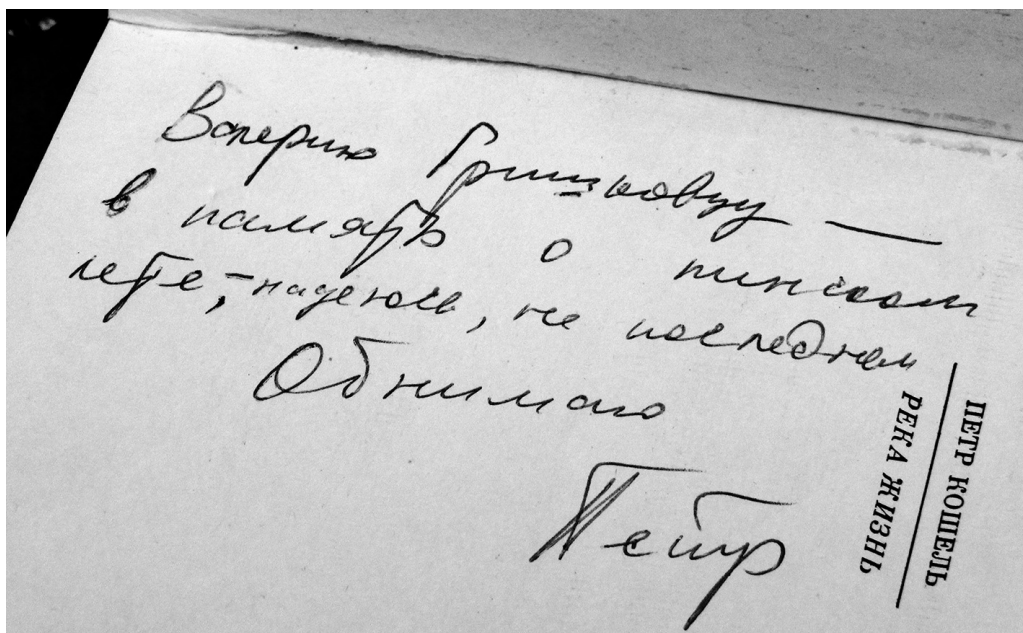 Валерию Гришковцу —
в память о пинском
лете, – надеюсь, не последнем
Обнимаю
Петр
ПЕТР КОШЕЛЬ
РЕКА ЖИЗНЬ